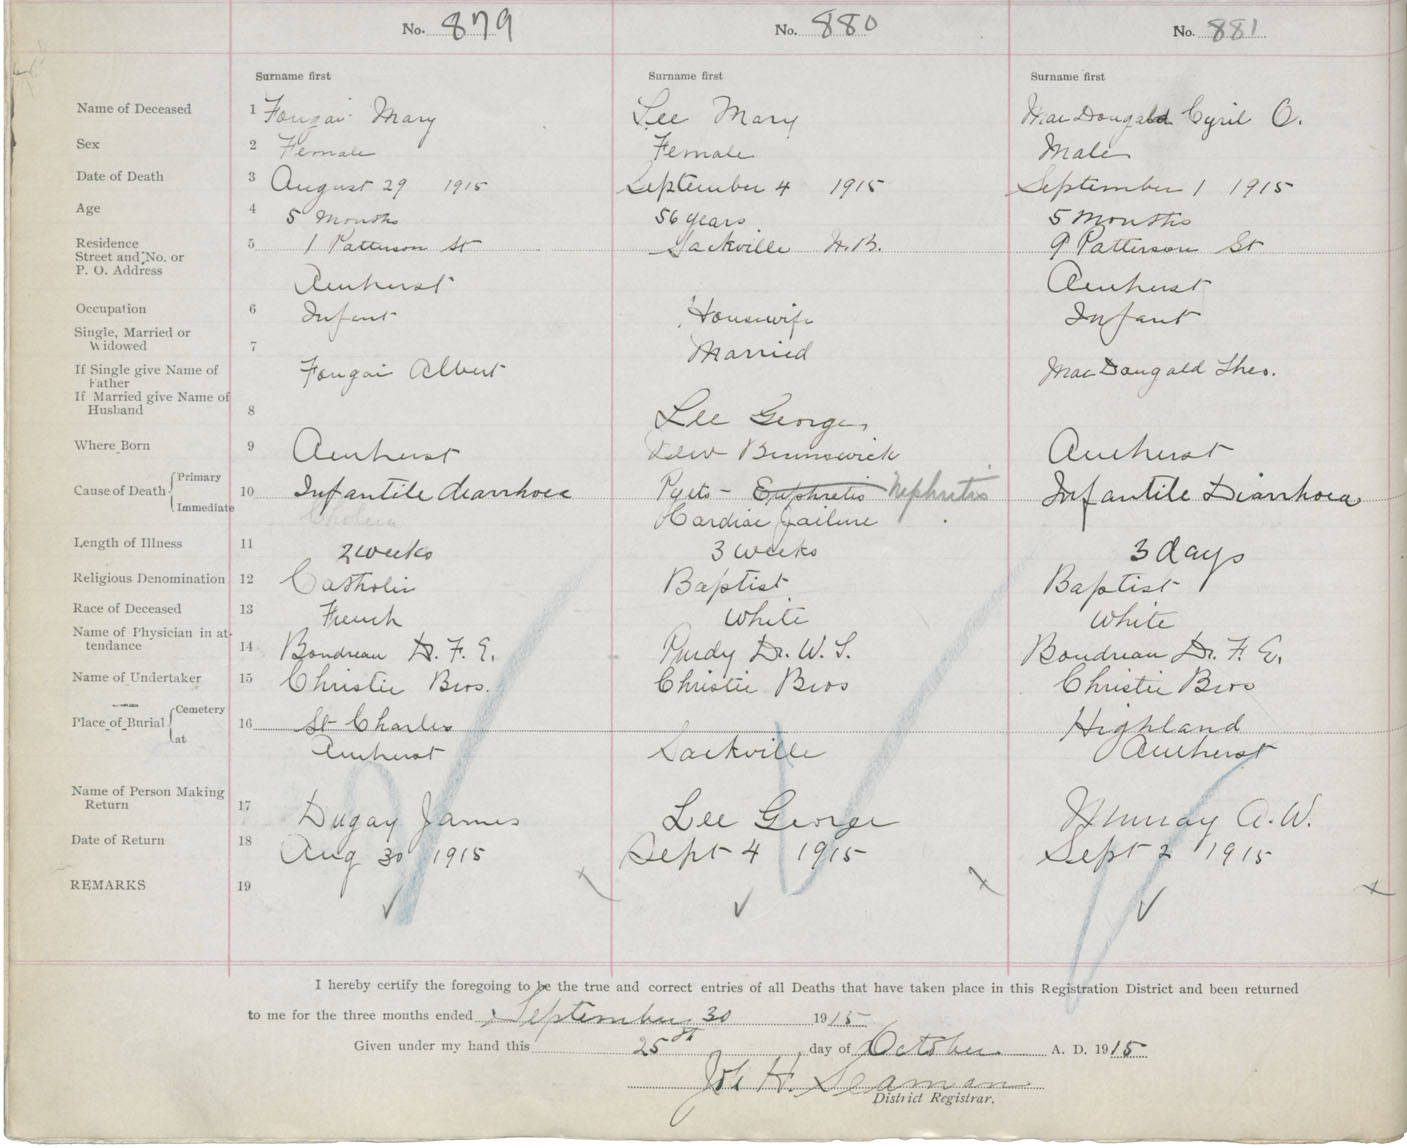 No. 879 No. 880 No. 881
Surname first Surname first Surname first
Name of Deceased 1 Fougai Mary Lee Mary MacDougald Cyril O.
Sex 2 Female Female Male
Date of Death 3 August 29 1915 September 4 1915 September 1 1915
Age 4 5 Months 56 years 5 Months
Residence 5 1 Patterson St Sackville N.B. 9 Patterson St
Street and No. or
P. O. Address Amherst Amherst
Occupation 6 Infant Housewife Infant
Single, Married or
Widowed 7 Married
If Single give Name of Fougai Albert MacDougald Theo.
Father
If Married give Name of
Husband 8 Lee George
Where Born 9 Amherst New Brunswick Amherst
Cause of Death Primary 10 Infantile diarrhoea Nephritis Infantile Diarrhoea
Immediate Cholera Cardiac failure
Length of Illness 11 2 weeks 3 weeks 3 days
Religious Denomination 12 Catholic Baptist Baptist
Race of Deceased 13 French White White
Name of Physician in at-
tendance 14 Boudreau Dr. F. E. Purdy Dr. W. S. Boudreau Dr. F. E.
Name of Undertaker 15 Christie Bros. Christie Bros Christie Bros
Place of Burial Cemetery 16 St Charles Highland
at Amherst Sackville Amherst
Name of Person Making
Return 17 Dugay James Lee George Murray A. W.
Date of Return 18 Aug 30 1915 Sept 4 1915 Sept 2 1915
REMARKS 19
I hereby certify the foregoing to be the true and correct entries of all Deaths that have taken place in this Registration District and been returned
to me for the three months ended September 30 1915
Given under my hand this 25th day of October A. D. 1915
H. Seaman
District Registrar.